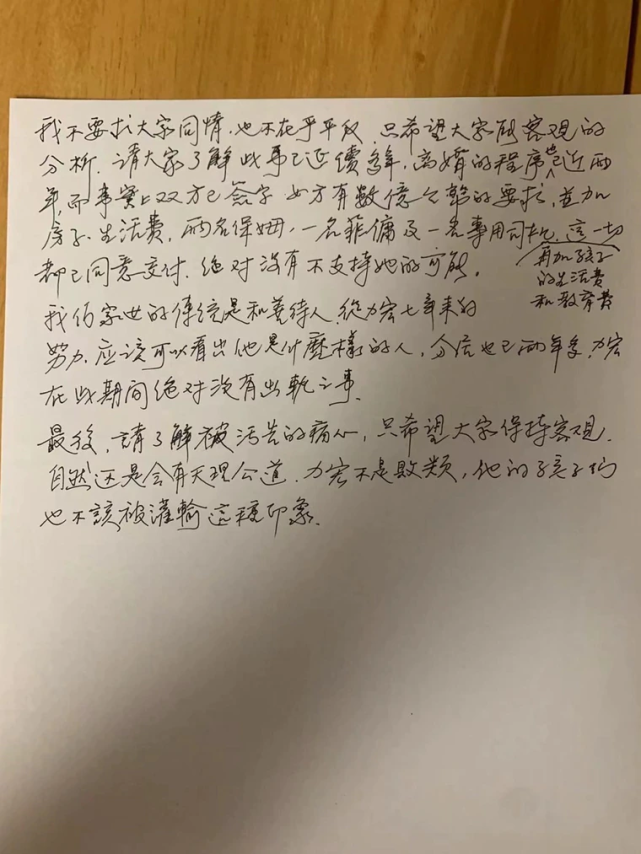 我不要求大家同情，也不在乎平反，只希望大家能客观的
分析．請大家了解此事已延續多年，离婚的程序也已近两
年，而事實上双方已簽字 女方有數億金額的要求，並加
房子、生活費，两名保姆，一名菲傭及一名專用司机．這一切
再加孩子
的生活費
和教育費
都已同意交付．绝对没有不支持她的可能。
我们家世的傳统是和善待人．從力宏七年來的
努力．應該可以看出他是什麼樣的人，分居也已两年多．力宏
在此期间绝对没有出軌之事．
最後，請了解被污衊的痛心，只希望大家保持客观．
自然还是会有天理公道．力宏不是敗類，他的孩子们
也不該被灌輸這種印象．